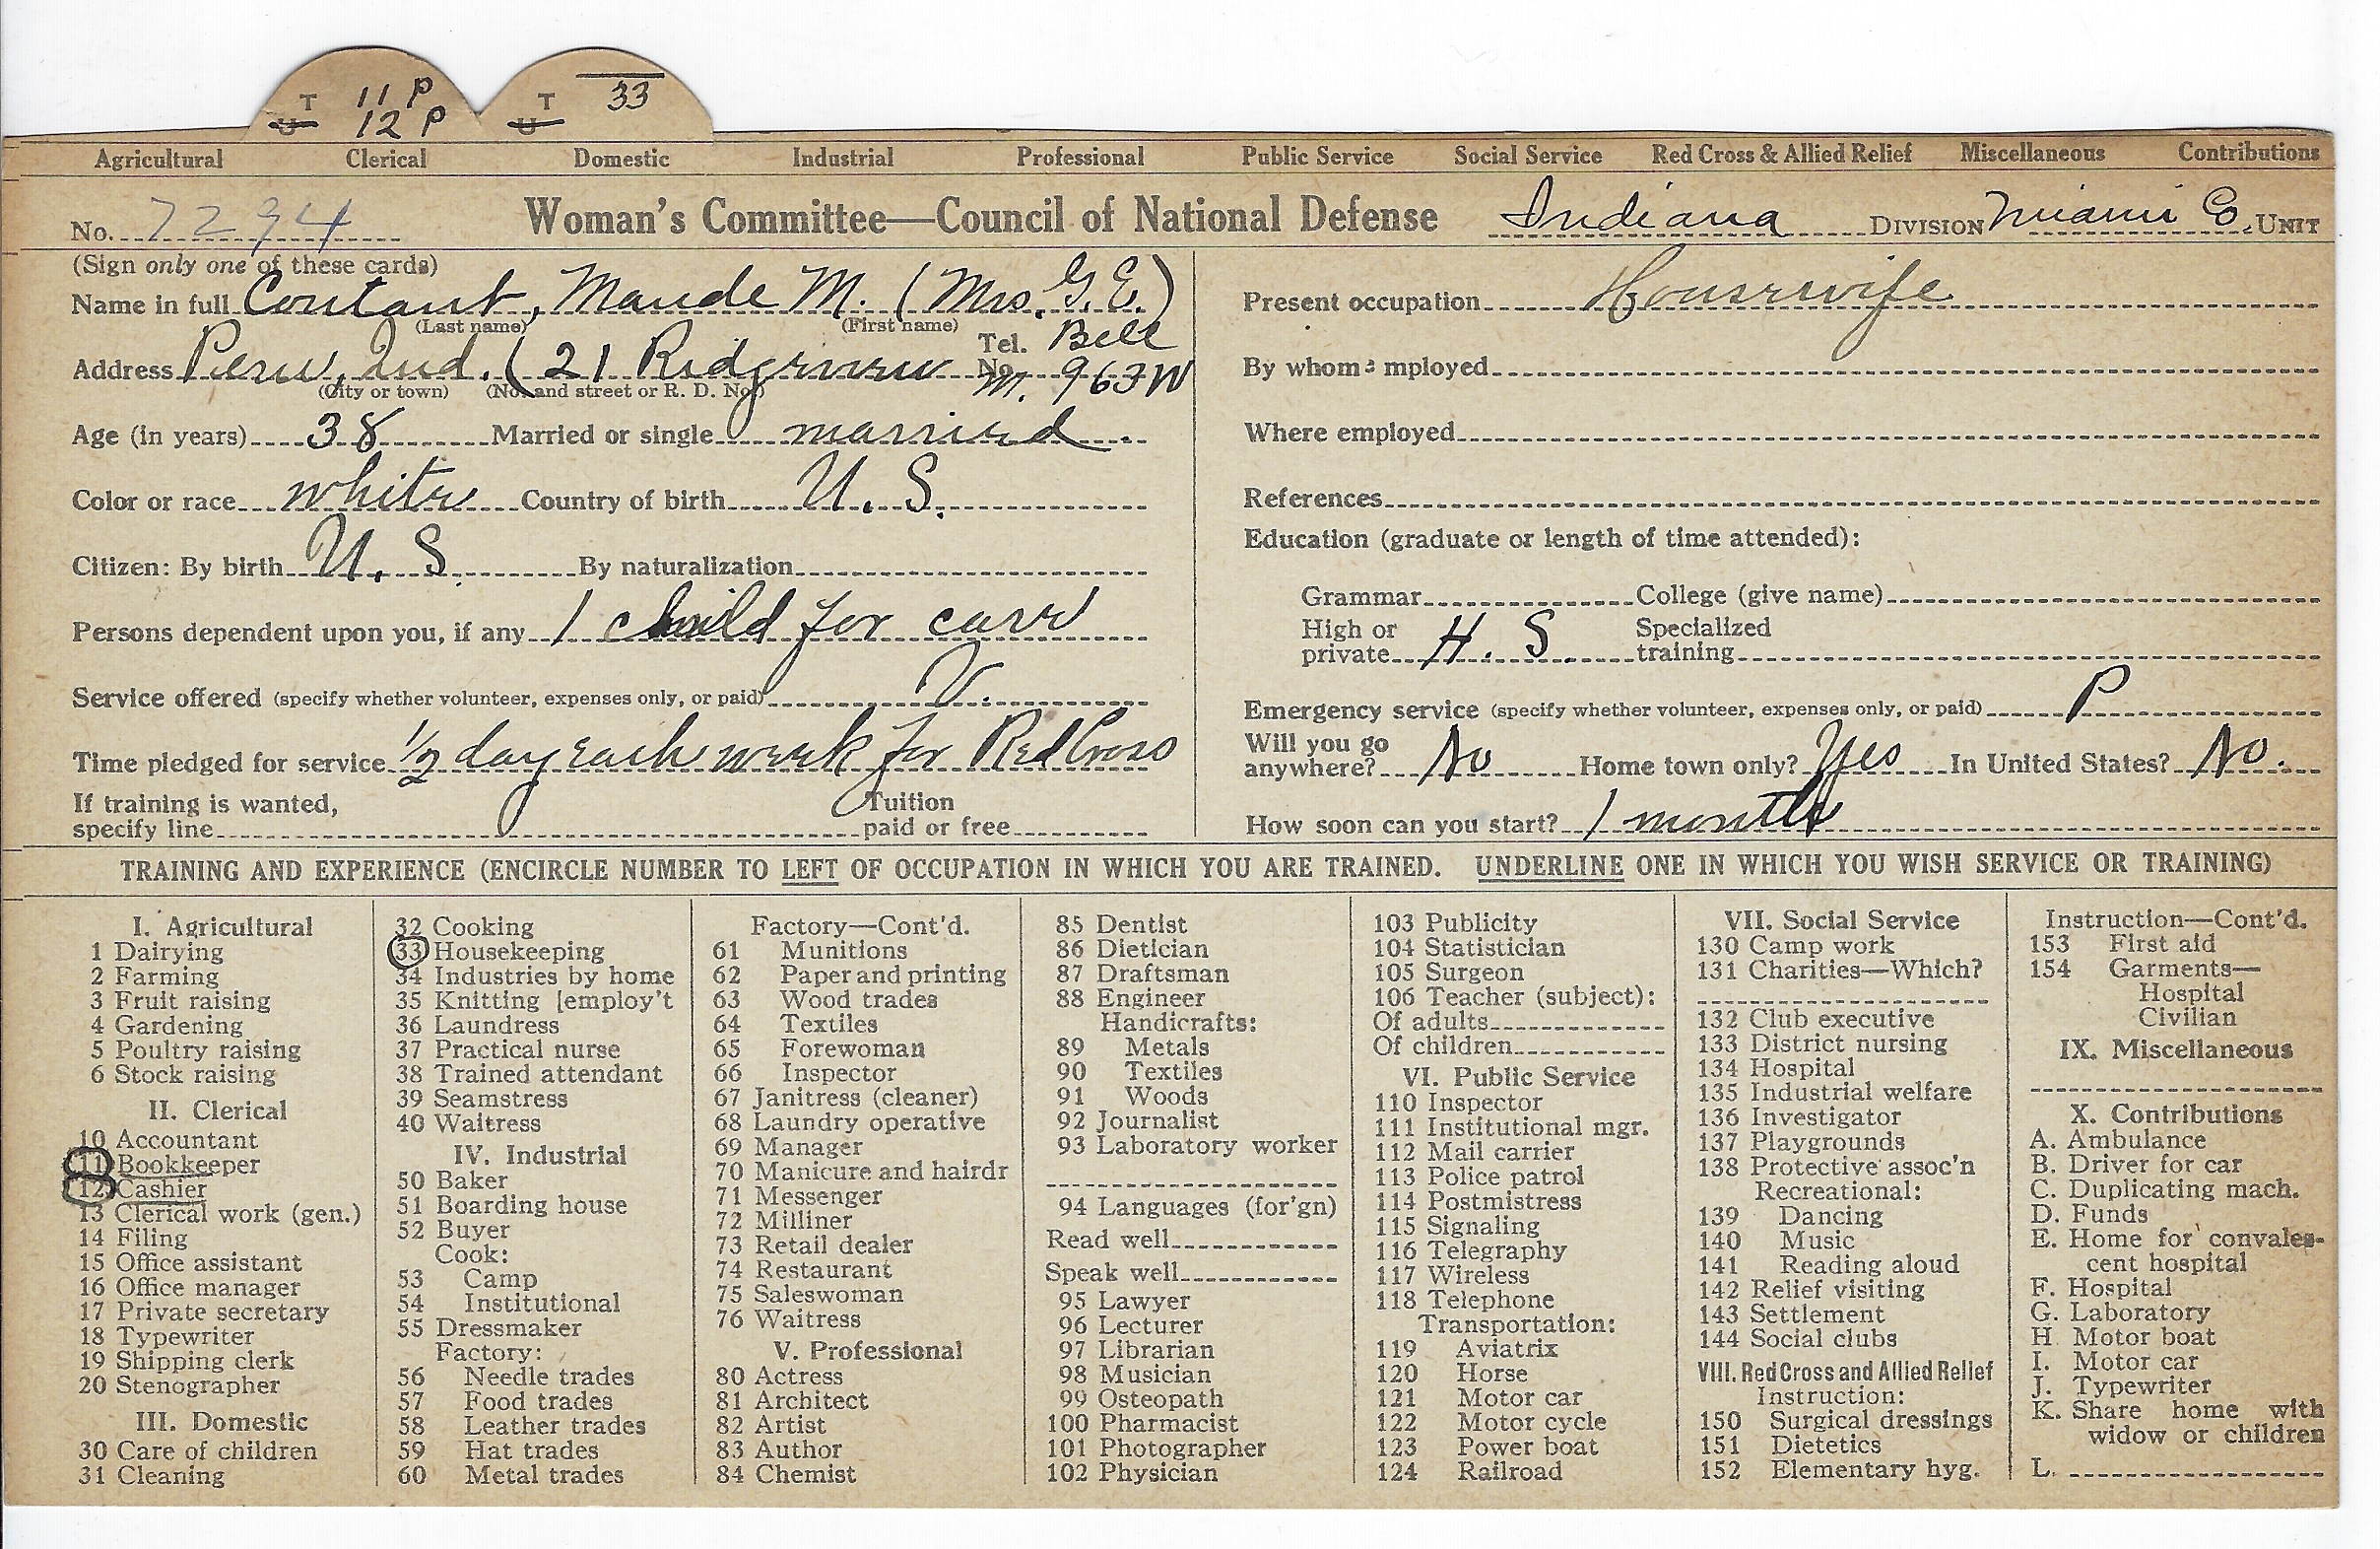 T 11 P T 33
U 12 P U
Agricultural Clerical Domestic Industrial Professional Public Service Social Service Red Cross & Allied Relief Miscellaneous Contributions
No. 7294 Woman's Committee—Council of National Defense Indiana DIVISION Miami Co. UNIT
(Sign only one of these cards)
Name in full Contant, Maude M. (Mrs. G. E.)
(Last name) (First name)
Address Peru, Ind. (21 Ridgeview Tel. No. Bell M. 963W
(City or town) (No. and street or R. D. No.)
Age (in years) 38 Married or single married
Color or race white Country of birth U. S.
Citizen: By birth U. S. By naturalization
Persons dependent upon you, if any 1 child for care
Service offered (specify whether volunteer, expenses only, or paid) V.
Time pledged for service 1/2 day each week for Red Cross
If training is wanted,
specify line Tuition paid or free
Present occupation Housewife
By whom employed
Where employed
References
Education (graduate or length of time attended):
Grammar College (give name)
High or private H. S. Specialized training
Emergency service (specify whether volunteer, expenses only, or paid) P
Will you go anywhere? No Home town only? Yes In United States? No.
How soon can you start? 1 month
TRAINING AND EXPERIENCE (ENCIRCLE NUMBER TO LEFT OF OCCUPATION IN WHICH YOU ARE TRAINED. UNDERLINE ONE IN WHICH YOU WISH SERVICE OR TRAINING)
I. Agricultural
1 Dairying
2 Farming
3 Fruit raising
4 Gardening
5 Poultry raising
6 Stock raising
II. Clerical
10 Accountant
11 Bookkeeper
12 Cashier
13 Clerical work (gen.)
14 Filing
15 Office assistant
16 Office manager
17 Private secretary
18 Typewriter
19 Shipping clerk
20 Stenographer
III. Domestic
30 Care of children
31 Cleaning
32 Cooking
33 Housekeeping
34 Industries by home
35 Knitting [employ't
36 Laundress
37 Practical nurse
38 Trained attendant
39 Seamstress
40 Waitress
IV. Industrial
50 Baker
51 Boarding house
52 Buyer
Cook:
53 Camp
54 Institutional
55 Dressmaker
Factory:
56 Needle trades
57 Food trades
58 Leather trades
59 Hat trades
60 Metal trades
Factory—Cont'd.
61 Munitions
62 Paper and printing
63 Wood trades
64 Textiles
65 Forewoman
66 Inspector
67 Janitress (cleaner)
68 Laundry operative
69 Manager
70 Manicure and hairdr
71 Messenger
72 Milliner
73 Retail dealer
74 Restaurant
75 Saleswoman
76 Waitress
V. Professional
80 Actress
81 Architect
82 Artist
83 Author
84 Chemist
85 Dentist
86 Dietician
87 Draftsman
88 Engineer
Handicrafts:
89 Metals
90 Textiles
91 Woods
92 Journalist
93 Laboratory worker
94 Languages (for'gn)
Read well
Speak well
95 Lawyer
96 Lecturer
97 Librarian
98 Musician
99 Osteopath
100 Pharmacist
101 Photographer
102 Physician
103 Publicity
104 Statistician
105 Surgeon
106 Teacher (subject):
Of adults
Of children
VI. Public Service
110 Inspector
111 Institutional mgr.
112 Mail carrier
113 Police patrol
114 Postmistress
115 Signaling
116 Telegraphy
117 Wireless
118 Telephone
Transportation:
119 Aviatrix
120 Horse
121 Motor car
122 Motor cycle
123 Power boat
124 Railroad
VII. Social Service
130 Camp work
131 Charities—Which?
132 Club executive
133 District nursing
134 Hospital
135 Industrial welfare
136 Investigator
137 Playgrounds
138 Protective assoc'n
Recreational:
139 Dancing
140 Music
141 Reading aloud
142 Relief visiting
143 Settlement
144 Social clubs
VIII. Red Cross and Allied Relief
Instruction:
150 Surgical dressings
151 Dietetics
152 Elementary hyg.
Instruction—Cont'd.
153 First aid
154 Garments—
Hospital
Civilian
IX. Miscellaneous
X. Contributions
A. Ambulance
B. Driver for car
C. Duplicating mach.
D. Funds
E. Home for convales-
cent hospital
F. Hospital
G. Laboratory
H. Motor boat
I. Motor car
J. Typewriter
K. Share home with
widow or children
L.